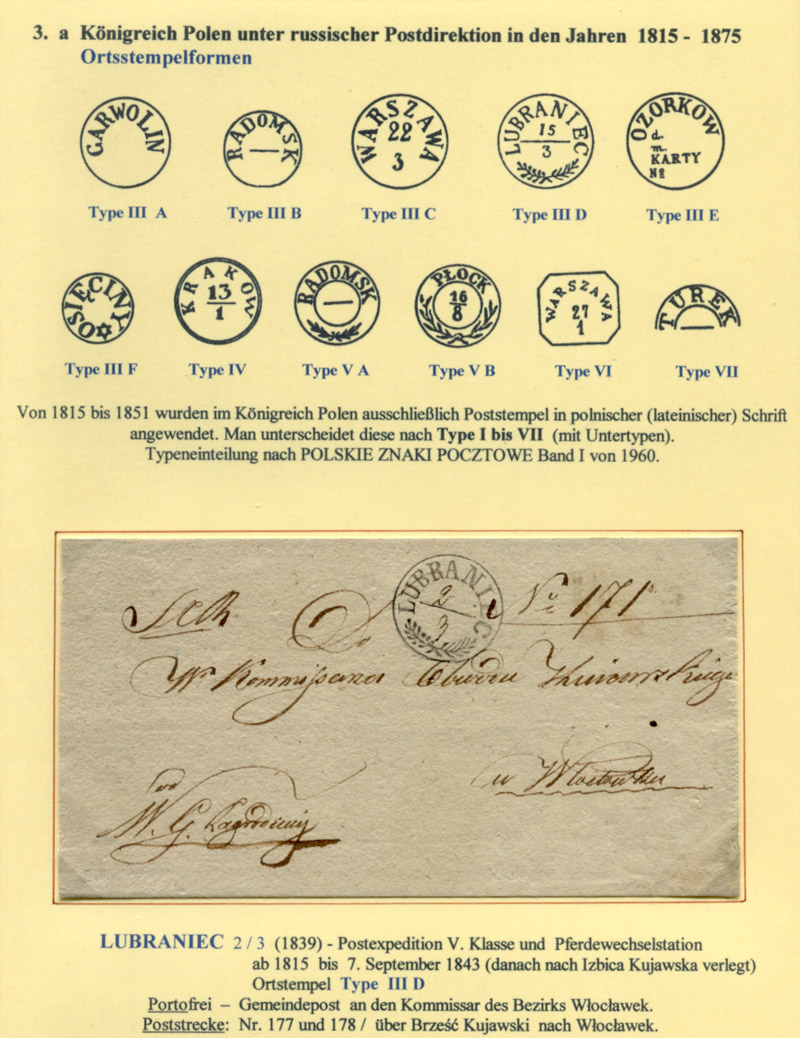 3. a Königreich Polen unter russischer Postdirektion in den Jahren 1815 - 1875
Ortsstempelformen
GARWOLIN
RADOMSK
WARSZAWA
22
3
LUBRANIEC
15
3
OZORKOW
d.
m.
KARTY
№
Type III A
Type III B
Type III C
Type III D
Type III E
OSIĘCINY
KRAKOW
13
1
RADOMSK
PŁOCK
16
8
WARSZAWA
27
1
TUREK
Type III F
Type IV
Type V A
Type V B
Type VI
Type VII
Von 1815 bis 1851 wurden im Königreich Polen ausschließlich Poststempel in polnischer (lateinischer) Schrift
angewendet. Man unterscheidet diese nach Type I bis VII (mit Untertypen).
Typeneinteilung nach POLSKIE ZNAKI POCZTOWE Band I von 1960.
LUBRANIEC
2
3
№ 171
Do
W Kommissarza Obwodu
w
od
W. G.
LUBRANIEC 2 / 3 (1839) - Postexpedition V. Klasse und Pferdewechselstation
ab 1815 bis 7. September 1843 (danach nach Izbica Kujawska verlegt)
Ortstempel Type III D
Portofrei – Gemeindepost an den Kommissar des Bezirks Włocławek.
Poststrecke: Nr. 177 und 178 / über Brześć Kujawski nach Włocławek.